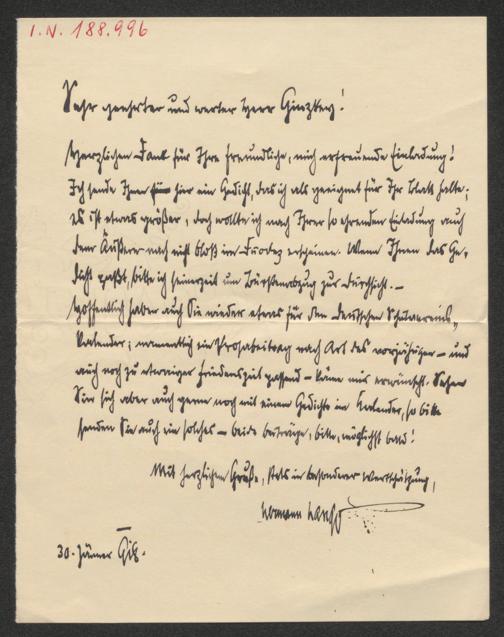 I.N. 188.996
Sehr geehrter und werter Herr Ginzkey!
Herzlichen Dank für Ihre freundliche, mich erfreuende Einladung!
Ich sende Ihnen hier ein Gedicht, das ich als geeignet für Ihr Blatt halte;
es ist etwas größer, doch wollte ich nach Ihrer so ehrenden Einladung auch
dem Äußeren nach nicht bloß im Duodez erscheinen. Wenn Ihnen das Ge-
dicht paßt, bitte ich seinerzeit um Bürstenabzug zur Durchsicht. –
Hoffentlich haben auch Sie wieder etwas für den Deutschen Schulvereins-
kalender; ein Prosabeitrag nach Art des vorjährigen – und
auch noch zu etwaiger Friedenszeit passend – käme mir erwünscht. Sehen
Sie sich aber auch gerne noch mit einem Gedichte im Kalender, so bitte
senden Sie auch ein solches – beide Beiträge, bitte, möglichst bald!
Mit herzlichem Gruße, stets in besonderer Wertschätzung,
Hermann
30. Jänner